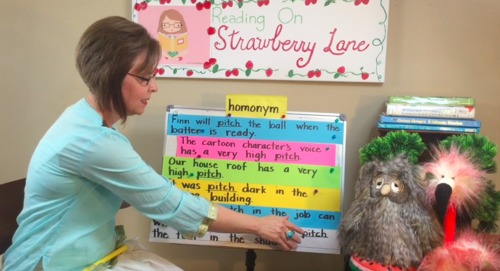 Reading On
Strawberry Lane
homonym
Finn will pitch the ball when the
batter is ready.
The cartoon character's voice
has a very high pitch.
Our house roof has a very
high pitch.
It was pitch dark in the
building.
in the job can
pitch
the in the